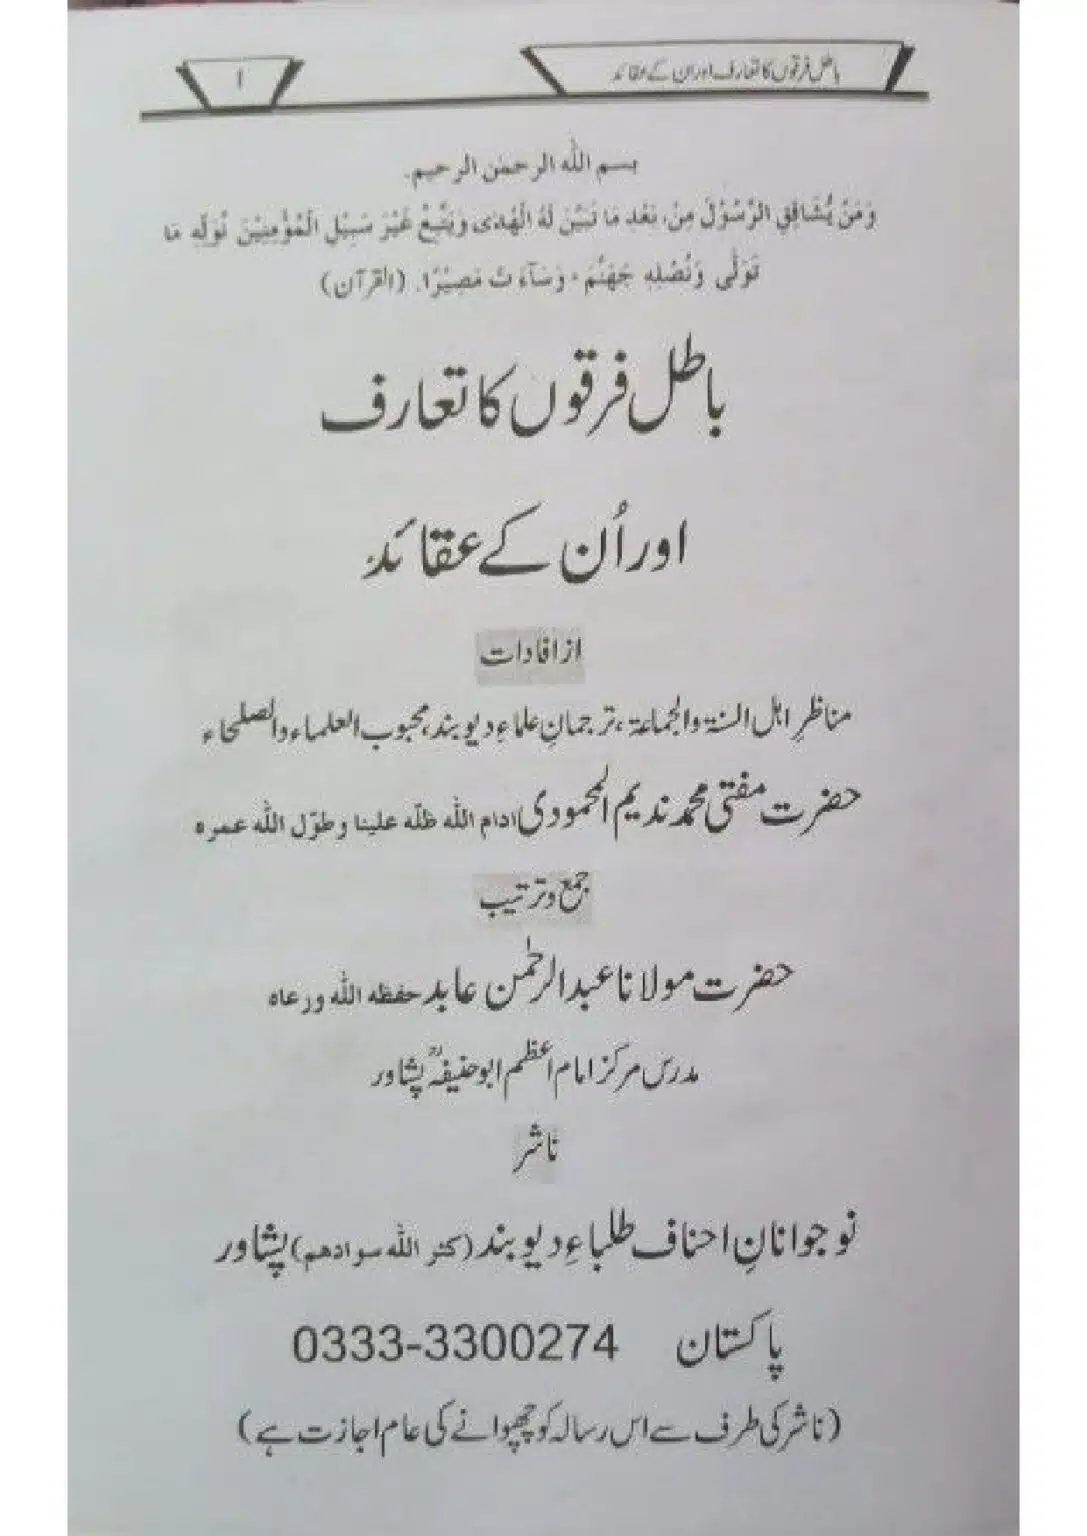 باطل فرقوں کا تعارف اور ان کے عقائد
۱
بسم اللہ الرحمٰن الرحیم.
وَمَنْ يُّشَاقِقِ الرَّسُوْلَ مِنْ بَعْدِ مَا تَبَيَّنَ لَهُ الْهُدٰى وَيَتَّبِعْ غَيْرَ سَبِيْلِ الْمُؤْمِنِيْنَ نُوَلِّهٖ مَا
تَوَلّٰى وَنُصْلِهٖ جَهَنَّمَ ، وَسَآءَتْ مَصِيْرًا. (القرآن)
باطل فرقوں کا تعارف
اور اُن کے عقائد
از افادات
مناظرِ اہل السنۃ والجماعۃ، ترجمانِ علماءِ دیوبند، محبوب العلماء والصلحاء
حضرت مفتی محمد ندیم المحمودی ادام اللہ ظلّہ علینا وطوّل اللہ عمرہ
جمع وترتیب
حضرت مولانا عبدالرحمٰن عابد حفظہ اللہ ورعاہ
مدرس مرکز امام اعظم ابوحنیفہؒ پشاور
ناشر
نوجوانانِ احناف طلباءِ دیوبند (کثر اللہ سوادھم) پشاور
پاکستان 0333-3300274
(ناشر کی طرف سے اس رسالہ کو چھپوانے کی عام اجازت ہے)